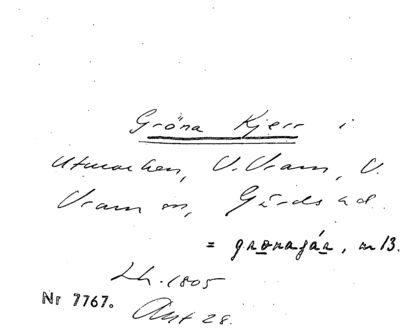 Gröna Kjerr i
Utmarken, V. Vram, V.
Vram sn, Gärds hd.
= gronaǵár, nr 13.
Lh. 1805
Nr 7767. Akt 28.